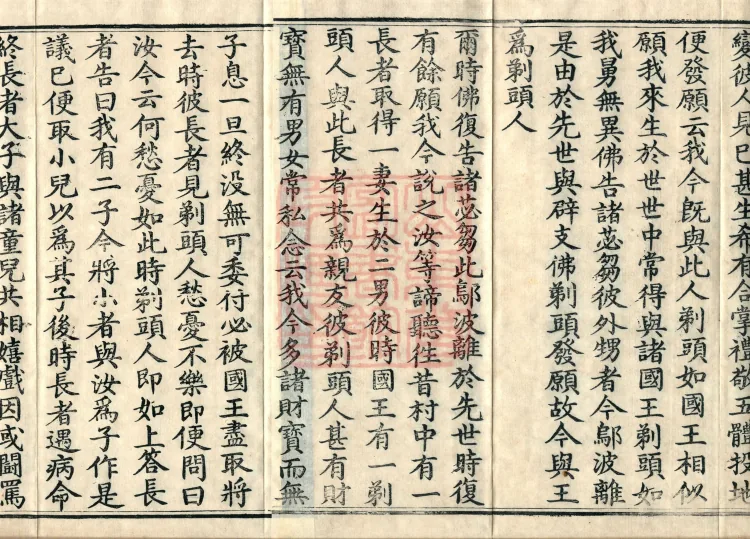 變彼人果已甚生希有合掌禮敬五體投地
便發願云我今既與此人剃頭如國王相似
願我來生於世世中常得與諸國王剃頭如
我舅無異佛告諸苾芻彼外甥者今鄔波離
是由於先世與辟支佛剃頭發願故今與王
爲剃頭人
爾時佛復告諸苾芻此鄔波離於先世時復
有餘願我今說之汝等諦聽徃昔村中有一
長者取得一妻生於二男彼時國王有一剃
頭人與此長者共爲親友彼剃頭人甚有財
寶無有男女常私念云我今多諸財寶而無
子息一旦終没無可委付必被國王盡取將
去時彼長者見剃頭人愁憂不樂即便問曰
汝今云何愁憂如此時剃頭人即如上答長
者告曰我有二子今將小者與汝爲子作是
議已便取小兒以爲其子後時長者遇病命
終長者大子與諸童兒共相嬉戲因或鬪罵